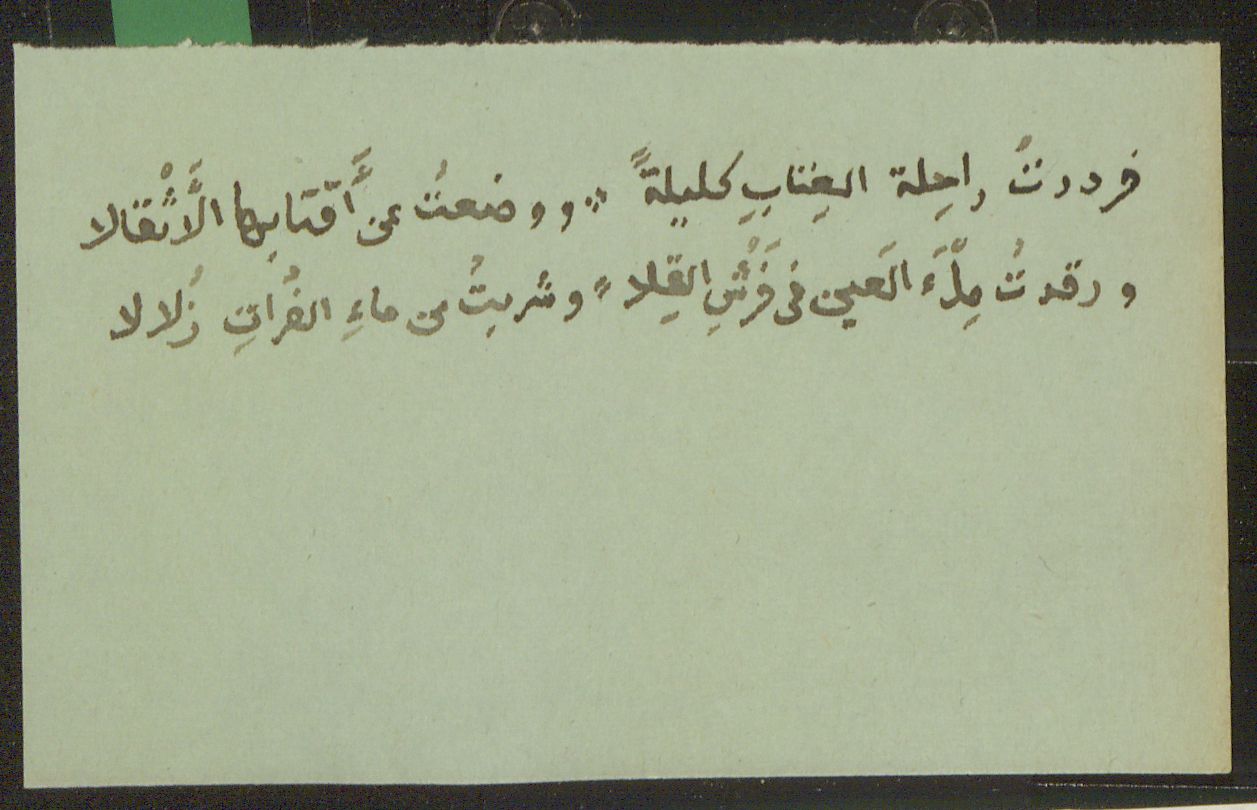 فرددتُ راحِلة العِتابِ كليلةً ∴ ووضعتُ عن أَقتابِها الأَثْقالا
ورقدتُ مِلْءَ العَينِ في فَرْشِ القِلا ∴ وشربتُ من ماءِ الفُراتِ زُلالا